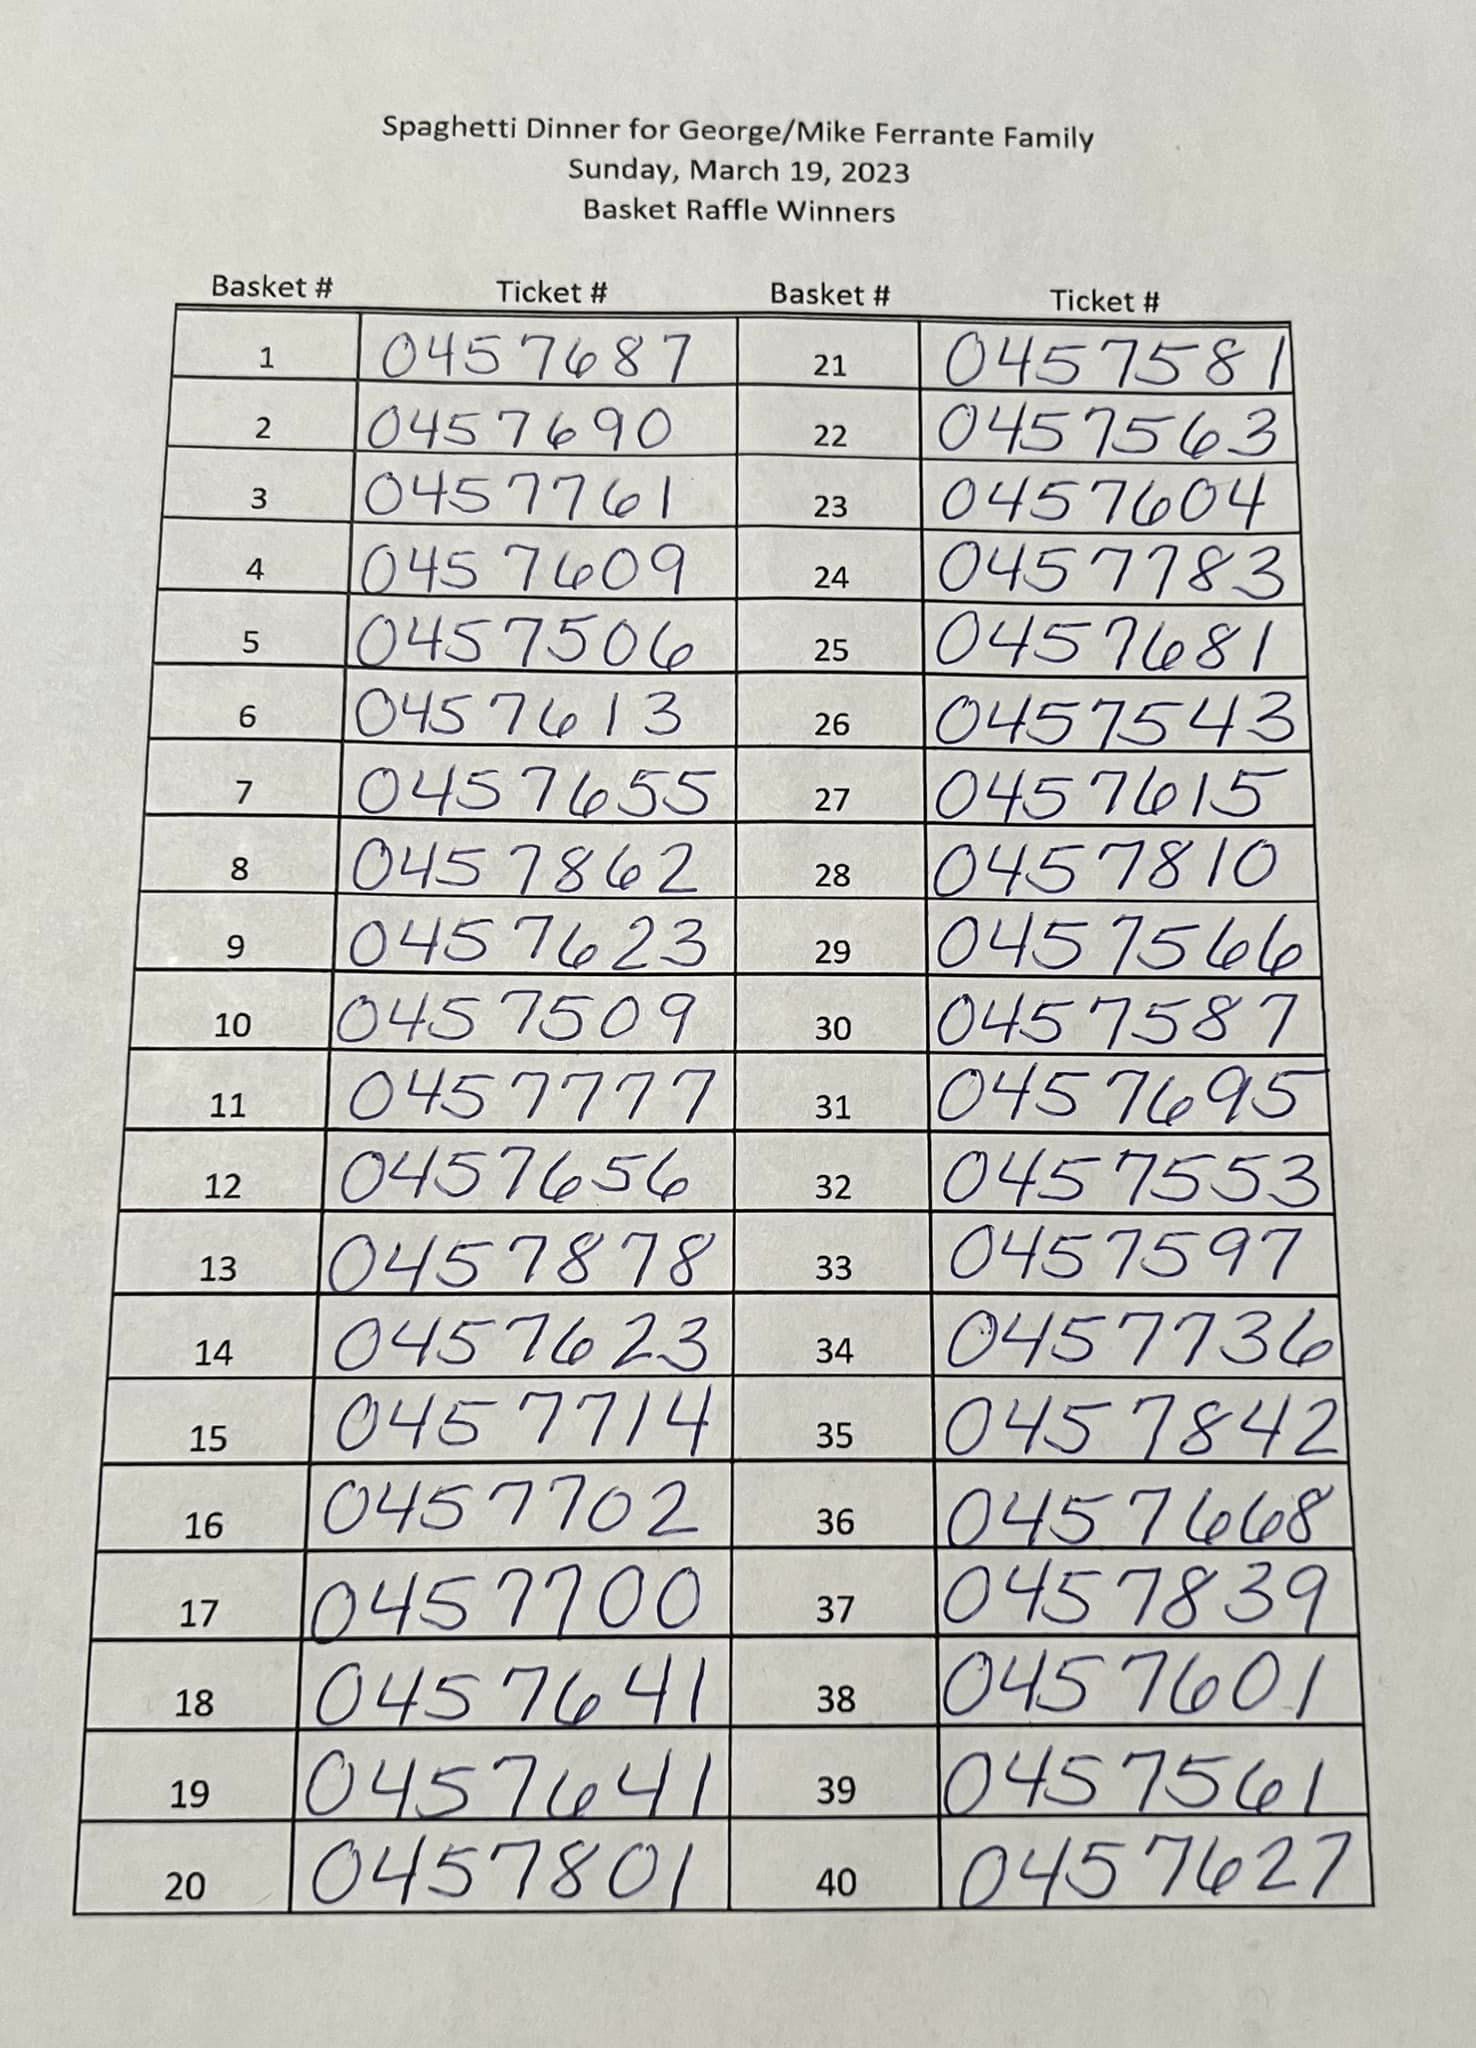 Spaghetti Dinner for George/Mike Ferrante Family
Sunday, March 19, 2023
Basket Raffle Winners
Basket # Ticket # Basket # Ticket #
1 0457687 21 0457581
2 0457690 22 0457563
3 0457761 23 0457604
4 0457609 24 0457783
5 0457506 25 0457681
6 0457613 26 0457543
7 0457655 27 0457615
8 0457862 28 0457810
9 0457623 29 0457566
10 0457509 30 0457587
11 0457777 31 0457695
12 0457656 32 0457553
13 0457878 33 0457597
14 0457623 34 0457736
15 0457714 35 0457842
16 0457702 36 0457668
17 0457700 37 0457839
18 0457641 38 0457601
19 0457641 39 0457561
20 0457801 40 0457627